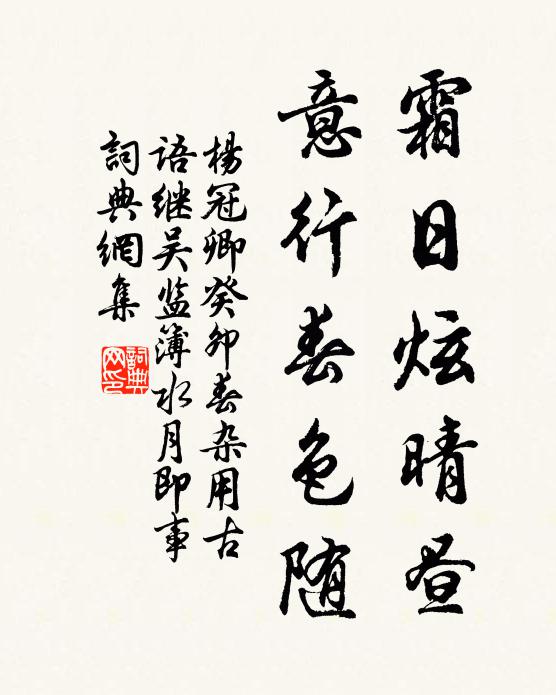 霜日炫晴昼
意行春色随
楊冠卿癸卯春杂用古
语继吴监簿水月即事
詞典網集
詞典
网印